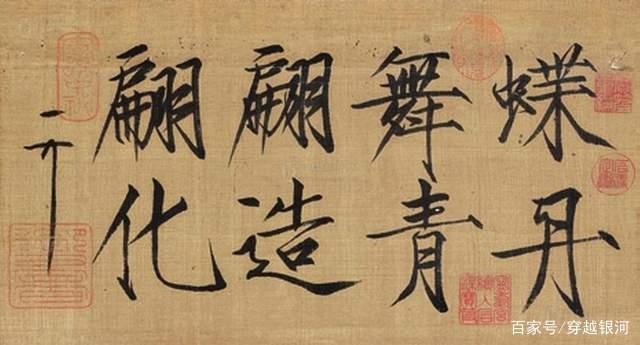 蝶舞翩翩
丹青造化
百家号/穿越银河